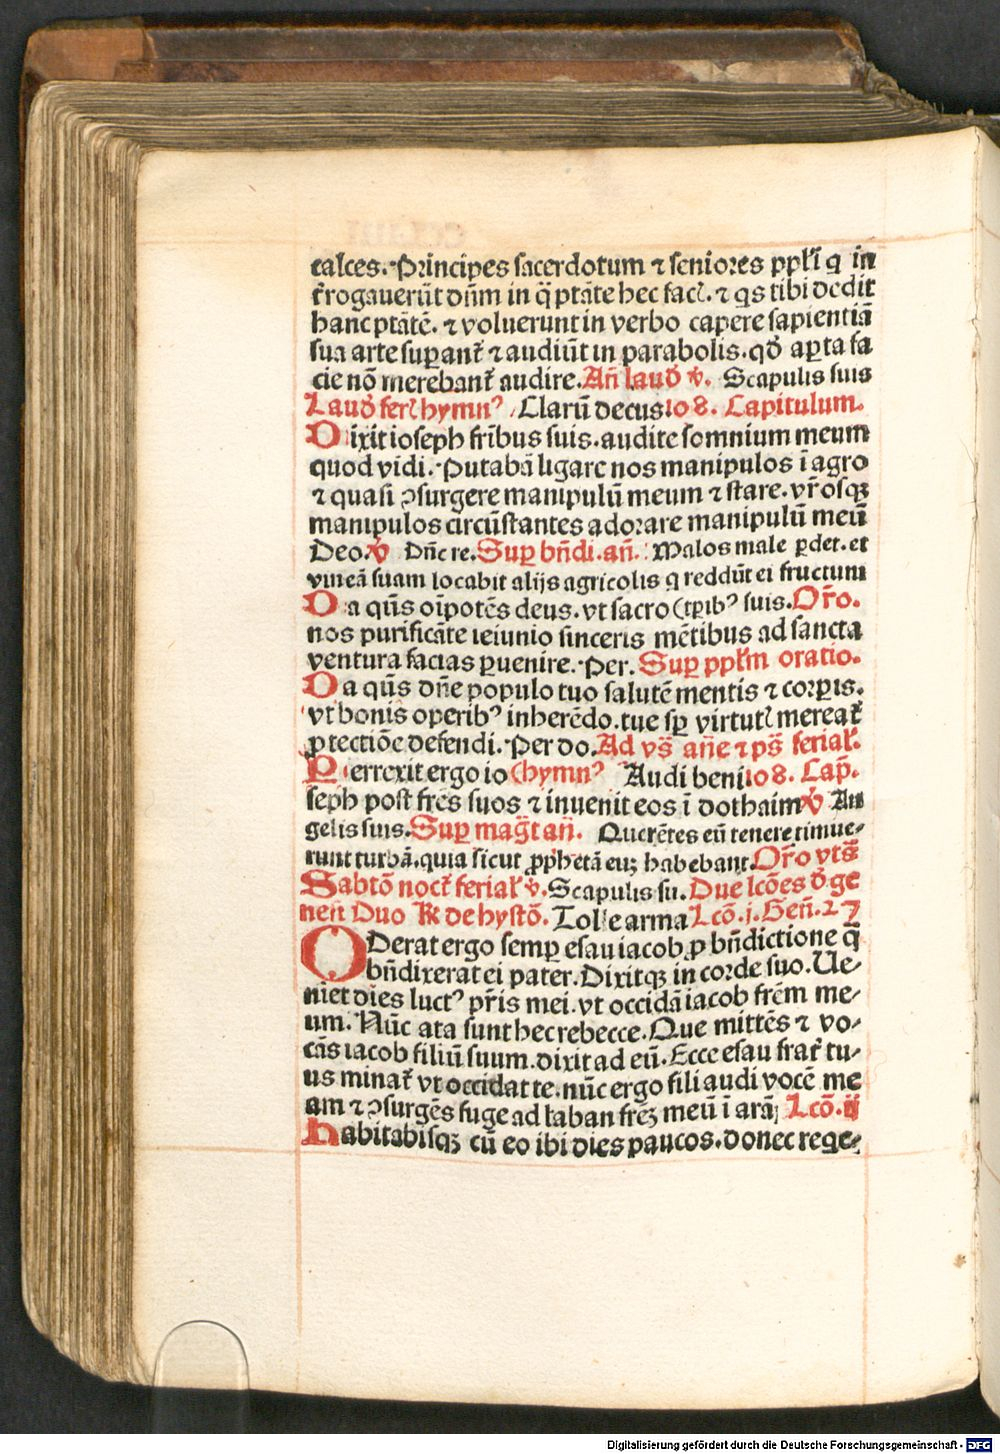 calces. Principes sacerdotum ⁊ seniores ppl'i q in
t'rogauerūt dn̄m in q̄ ptāte hec facl. ⁊ qs tibi dedit
hanc ptātē. ⁊ voluerunt in verbo capere sapientiā
sua arte suꝑant' ⁊ audiūt in parabolis. qd' aꝑta fa
cie nō merebant' audire. An̄ laud' v̾. Scapulis suis
Laud' ferl hymnꝰ Clarū decus 108. Capitulum.
Dixit ioseph fr̄ibus suis. audite somnium meum
quod vidi. Putabā ligare nos manipulos ī agro
⁊ quasi ꝯsurgere manipulū meum ⁊ stare. vr̄osqꝫ
manipulos circūstantes adorare manipulū meū
Deo. v̾ Dn̄e re. Suꝑ bn̄di. an̄. Malos male ꝑdet. et
vineā suam locabit alijs agricolis q reddūt ei fructum
Da qūs oīpotēs deus. vt sacro (tꝑibꝰ suis. Or̄o.
nos purificāte ieiunio sinceris mētibus ad sancta
ventura facias ꝑuenire. Per. Suꝑ ppl'm oratio.
Da qūs dn̄e populo tuo salutē mentis ⁊ corꝑis.
vt bonis operibꝰ inherēdo. tue sꝑ virtutl mereat'
ꝓtectiōe defendi. Per do. Ad vs̄ an̄e ⁊ ps̄ ferial'.
Perrexit ergo io (hymnꝰ Audi beni 108. Cap̄.
seph post fr̄es suos ⁊ inuenit eos ī dothaim v̾ An
gelis suis. Suꝑ mag̅t an̄. Querētes eū tenere timue⸗
runt turbā. quia sicut ꝓphetā euꝫ habebant. Or̄o vts̄
Sabtō noct' ferial' v̾. Scapulis su. Due lcōes d' ge
nen̄ Duo R̄ de hystō. Tolle arma Lcō. j. Gen̄. 27
ODerat ergo semꝑ esau iacob ꝓ bn̄dictione q̄
bn̄dixerat ei pater. Dixitqꝫ in corde suo. Ue⸗
niet dies luctꝰ pr̄is mei. vt occidā iacob fr̄em me⸗
um. Nūc ata sunt hec rebecce. Que mittēs ⁊ vo⸗
cās iacob filiū suum. dixit ad eū. Ecce esau frat' tu⸗
us minat' vt occidat te. nūc ergo fili audi vocē me
am ⁊ ꝯsurgēs fuge ad laban fr̄eꝫ meū ī arā; Lcō. ij
habitabisqꝫ cū eo ibi dies paucos. donec reqe⸗
Digitalisierung gefördert durch die Deutsche Forschungsgemeinschaft - DFG